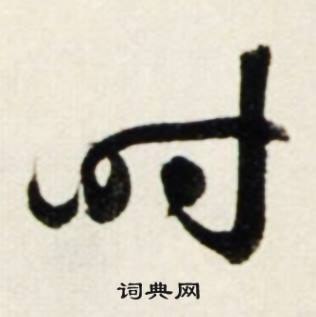 时
词典网